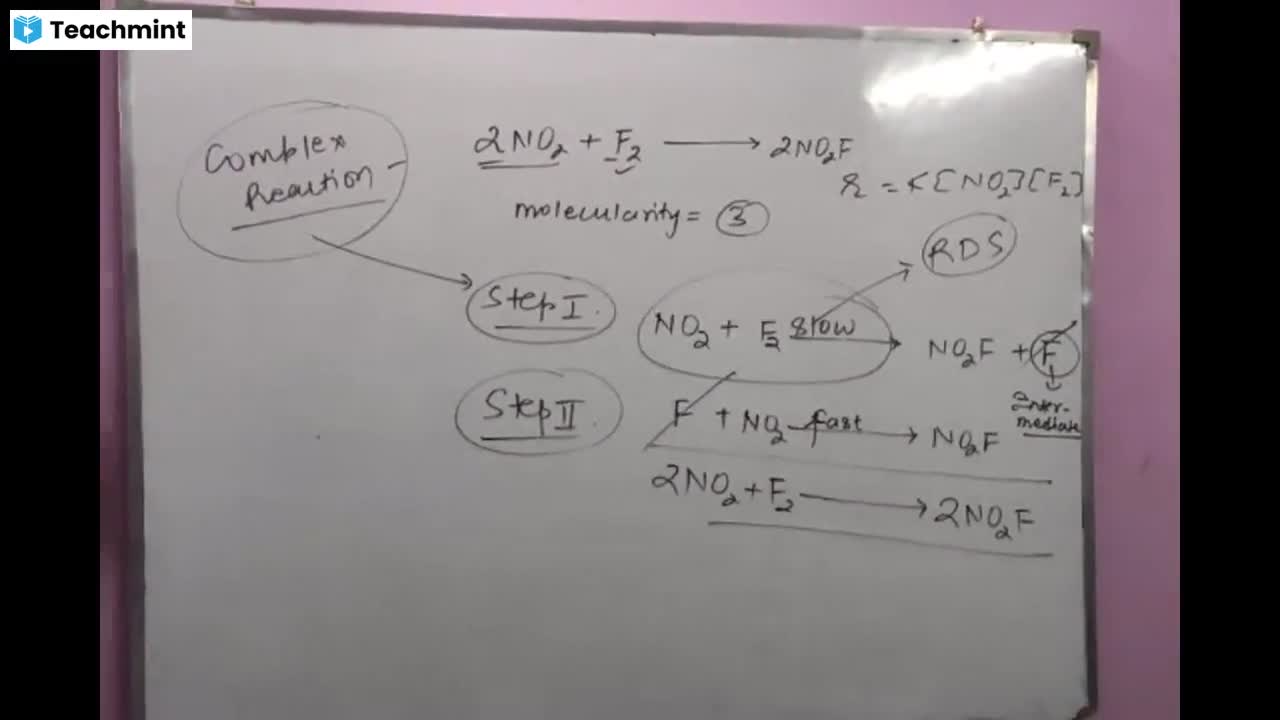 Teachmint
Complex
Reaction
2NO₂ + F₂ → 2NO₂F
r = K[NO₂][F₂]
molecularity = 3
RDS
Step I.
NO₂ + F₂ slow → NO₂F + F
Inter-
mediate
Step II.
F + NO₂ fast → NO₂F
2NO₂ + F₂ → 2NO₂F